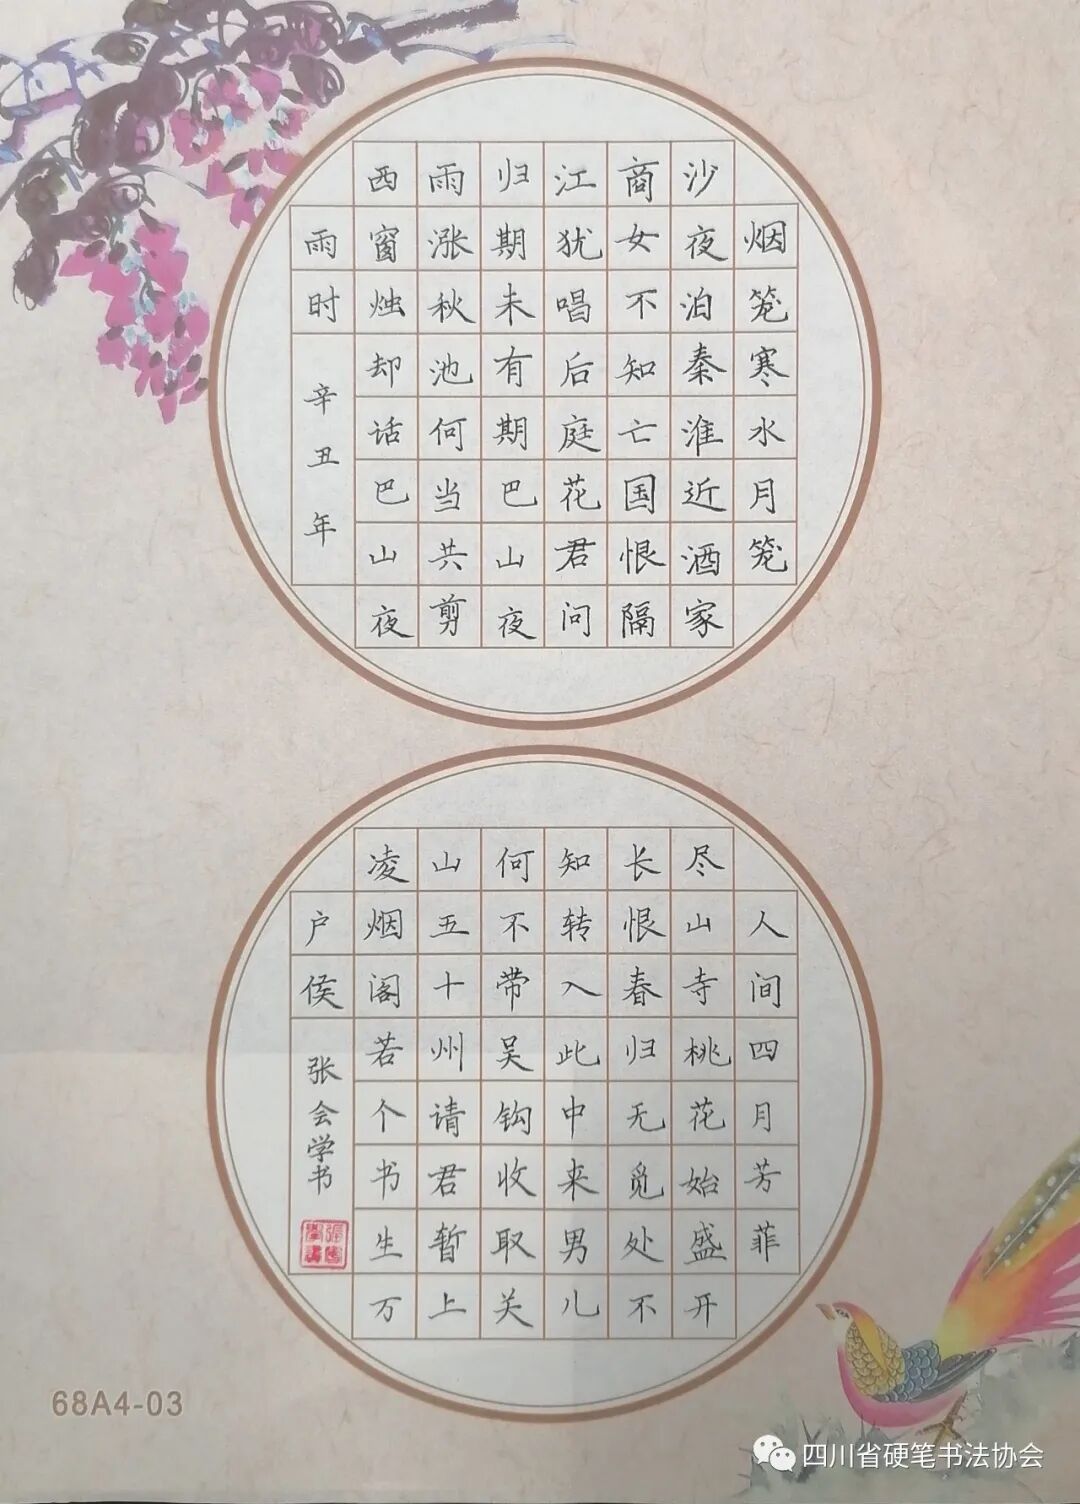 烟笼寒水月笼
沙夜泊秦淮近酒家
商女不知亡国恨隔
江犹唱后庭花君问
归期未有期巴山夜
雨涨秋池何当共剪
西窗烛却话巴山夜
雨时
辛丑年
人间四月芳菲
尽山寺桃花始盛开
长恨春归无觅处不
知转入此中来男儿
何不带吴钩收取关
山五十州请君暂上
凌烟阁若个书生万
户侯
张会学书
68A4-03
四川省硬笔书法协会